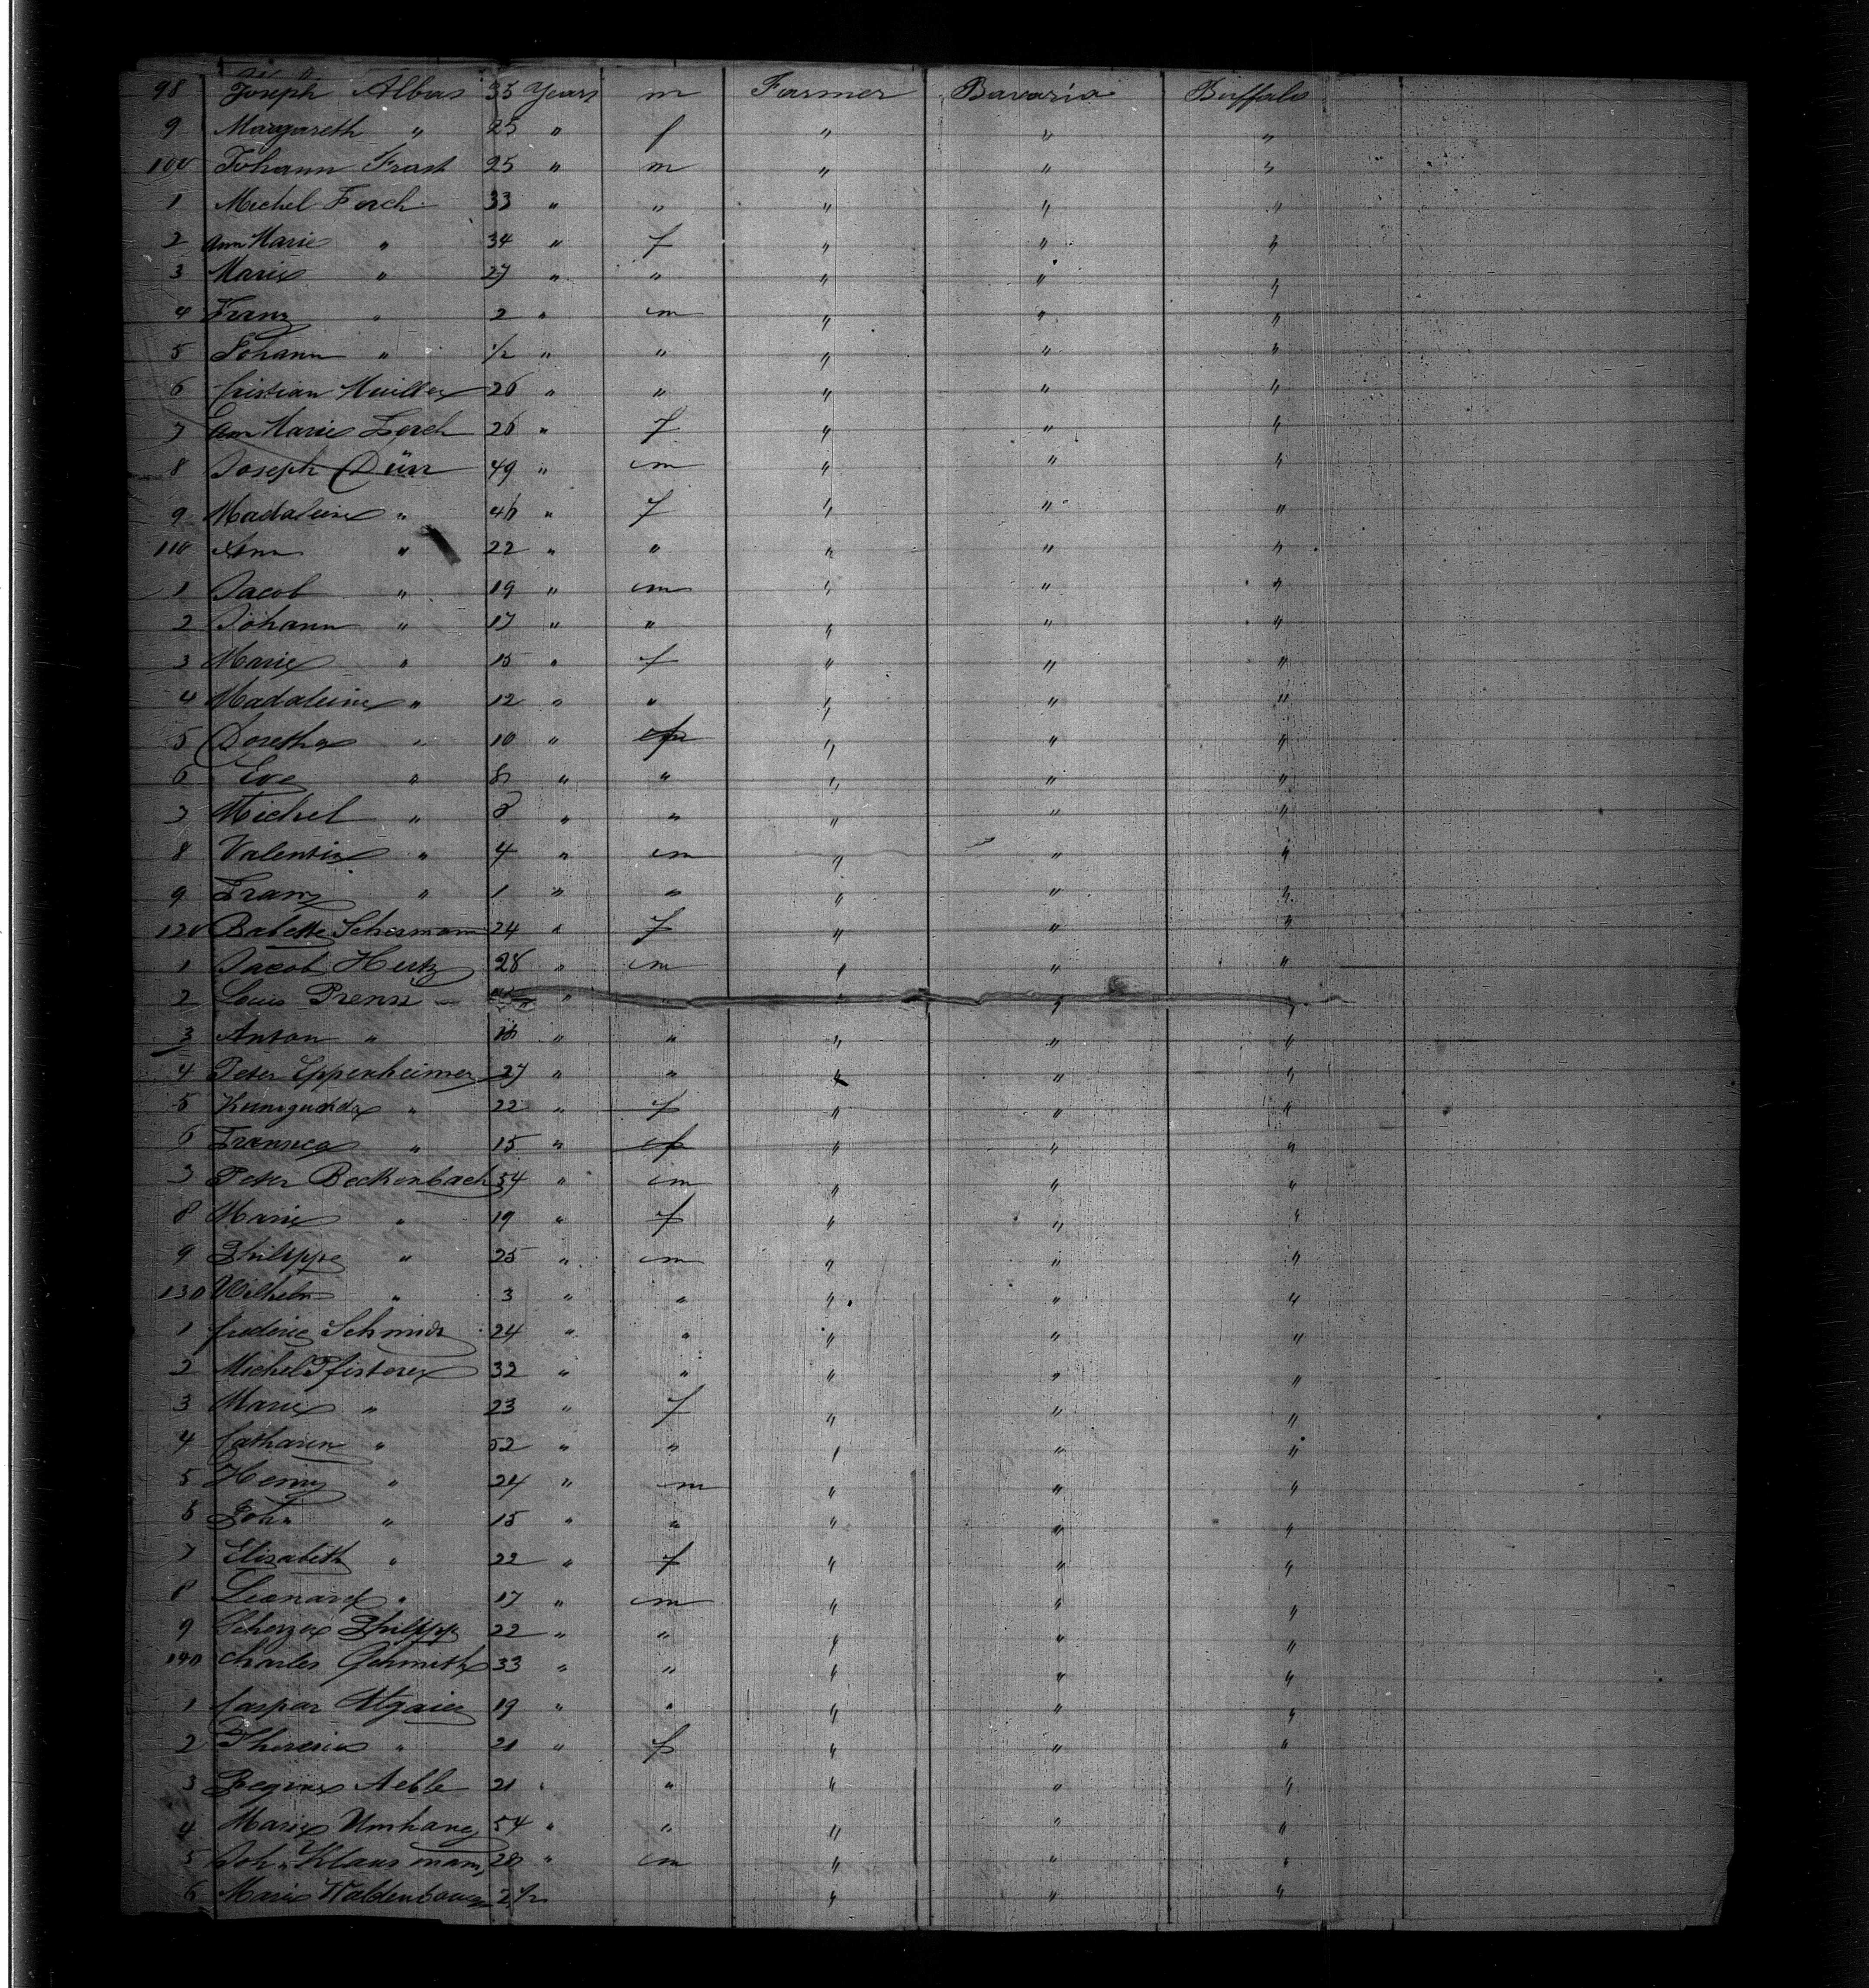 98 Joseph Albus 35 Years m Farmer Bavaria Buffalo
9 Margareth " 25 " f " " "
100 Johann Frast 25 " m " " "
1 Michel Ferch 33 " " " " "
2 Ann Marie " 34 " f " " "
3 Marie " 27 " " " " "
4 Franz " 2 " m " " "
5 Johann " 1/2 " " " " "
6 Cristian Muiller 26 " " " " "
7 Ann Marie Ferch 26 " f " " "
8 Joseph Dürr 49 " m " " "
9 Madaleine " 46 " f " " "
110 Ann " 22 " " " " "
1 Jacob " 19 " m " " "
2 Johann " 17 " " " " "
3 Marie " 15 " f " " "
4 Madaleine " 12 " " " " "
5 Doretha " 10 " f " " "
6 Eve " 8 " " " " "
7 Michel " 8 " " " " "
8 Valentin " 4 " m " " "
9 Franz " 1 " " " " "
120 Babette Schermann 24 " f " " "
1 Jacob Hertz 28 " m " " "
2 Louis " " " "
3 Anton " 16 " " " " "
4 Peter Eppenheimer 27 " " " " "
5 " 22 " f " " "
6 Franseca " 15 " f " " "
7 Peter Beckenbach 54 " m " " "
8 Marie " 19 " f " " "
9 Philippe " 25 " m " " "
130 Wilhelm " 3 " " " " "
1 frederic Schmidt 24 " " " " "
2 Michel Pfisterer 32 " " " " "
3 Marie " 23 " f " " "
4 Catharin " 52 " " " " "
5 Henry " 24 " m " " "
6 Joh. " 15 " " " " "
7 Elisabeth " 22 " f " " "
8 Leonard " 17 " m " " "
9 Scherzer Philipp 22 " " " " "
140 Charles Schmith 33 " " " " "
1 Caspar Algaier 19 " " " " "
2 Theresia " 21 " f " " "
3 Aeble 21 " " " " "
4 Marie Umhang 54 " " " " "
5 Joh. Klausmann 28 " m " " "
6 Marie 2 1/2 " " "